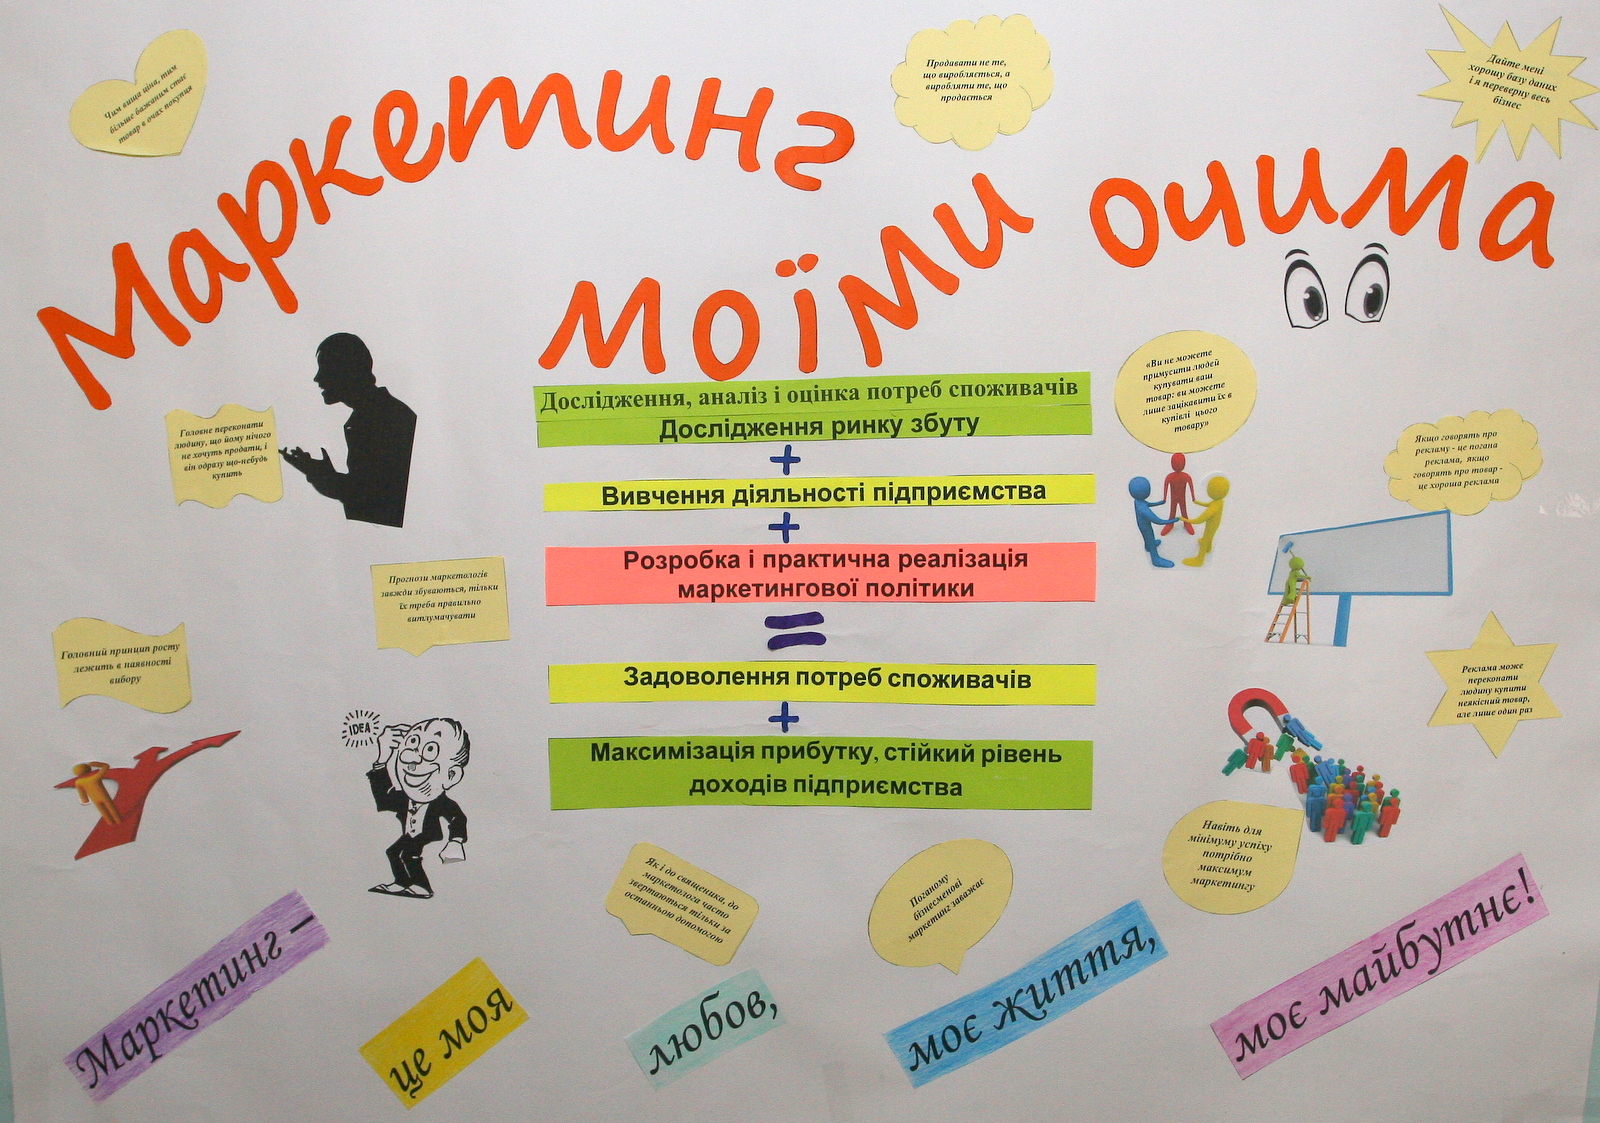 Маркетинг
моїми
очима
Чим вища ціна, тим
більше бажаним стає
товар в очах покупця
Продавати не те,
що виробляється, а
виробляти те, що
продається
Дайте мені
хорошу базу даних
і я переверну весь
бізнес
Головне переконати
людину, що йому нічого
не хочуть продати, і
він одразу що-небудь
купить
Дослідження, аналіз і оцінка потреб споживачів
Дослідження ринку збуту
+
Вивчення діяльності підприємства
+
Розробка і практична реалізація
маркетингової політики
=
Задоволення потреб споживачів
+
Максимізація прибутку, стійкий рівень
доходів підприємства
«Ви не можете
примусити людей
купувати ваш
товар: ви можете
лише зацікавити їх в
купівлі цього
товару»
Якщо говорять про
рекламу - це погана
реклама, якщо
говорять про товар -
це хороша реклама
Прогнози маркетологів
завжди збуваються, тільки
їх треба правильно
витлумачувати
Головний принцип росту
лежить в наявності
вибору
IDEA
Реклама може
переконати
людину купити
неякісний товар,
але лише один раз
Навіть для
мінімуму успіху
потрібно
максимум
маркетингу
Як і до священика, до
маркетолога часто
звертаються тільки за
останньою допомогою
Поганому
бізнесменові
маркетинг заважає
Маркетинг –
це моя
любов,
моє життя,
моє майбутнє!